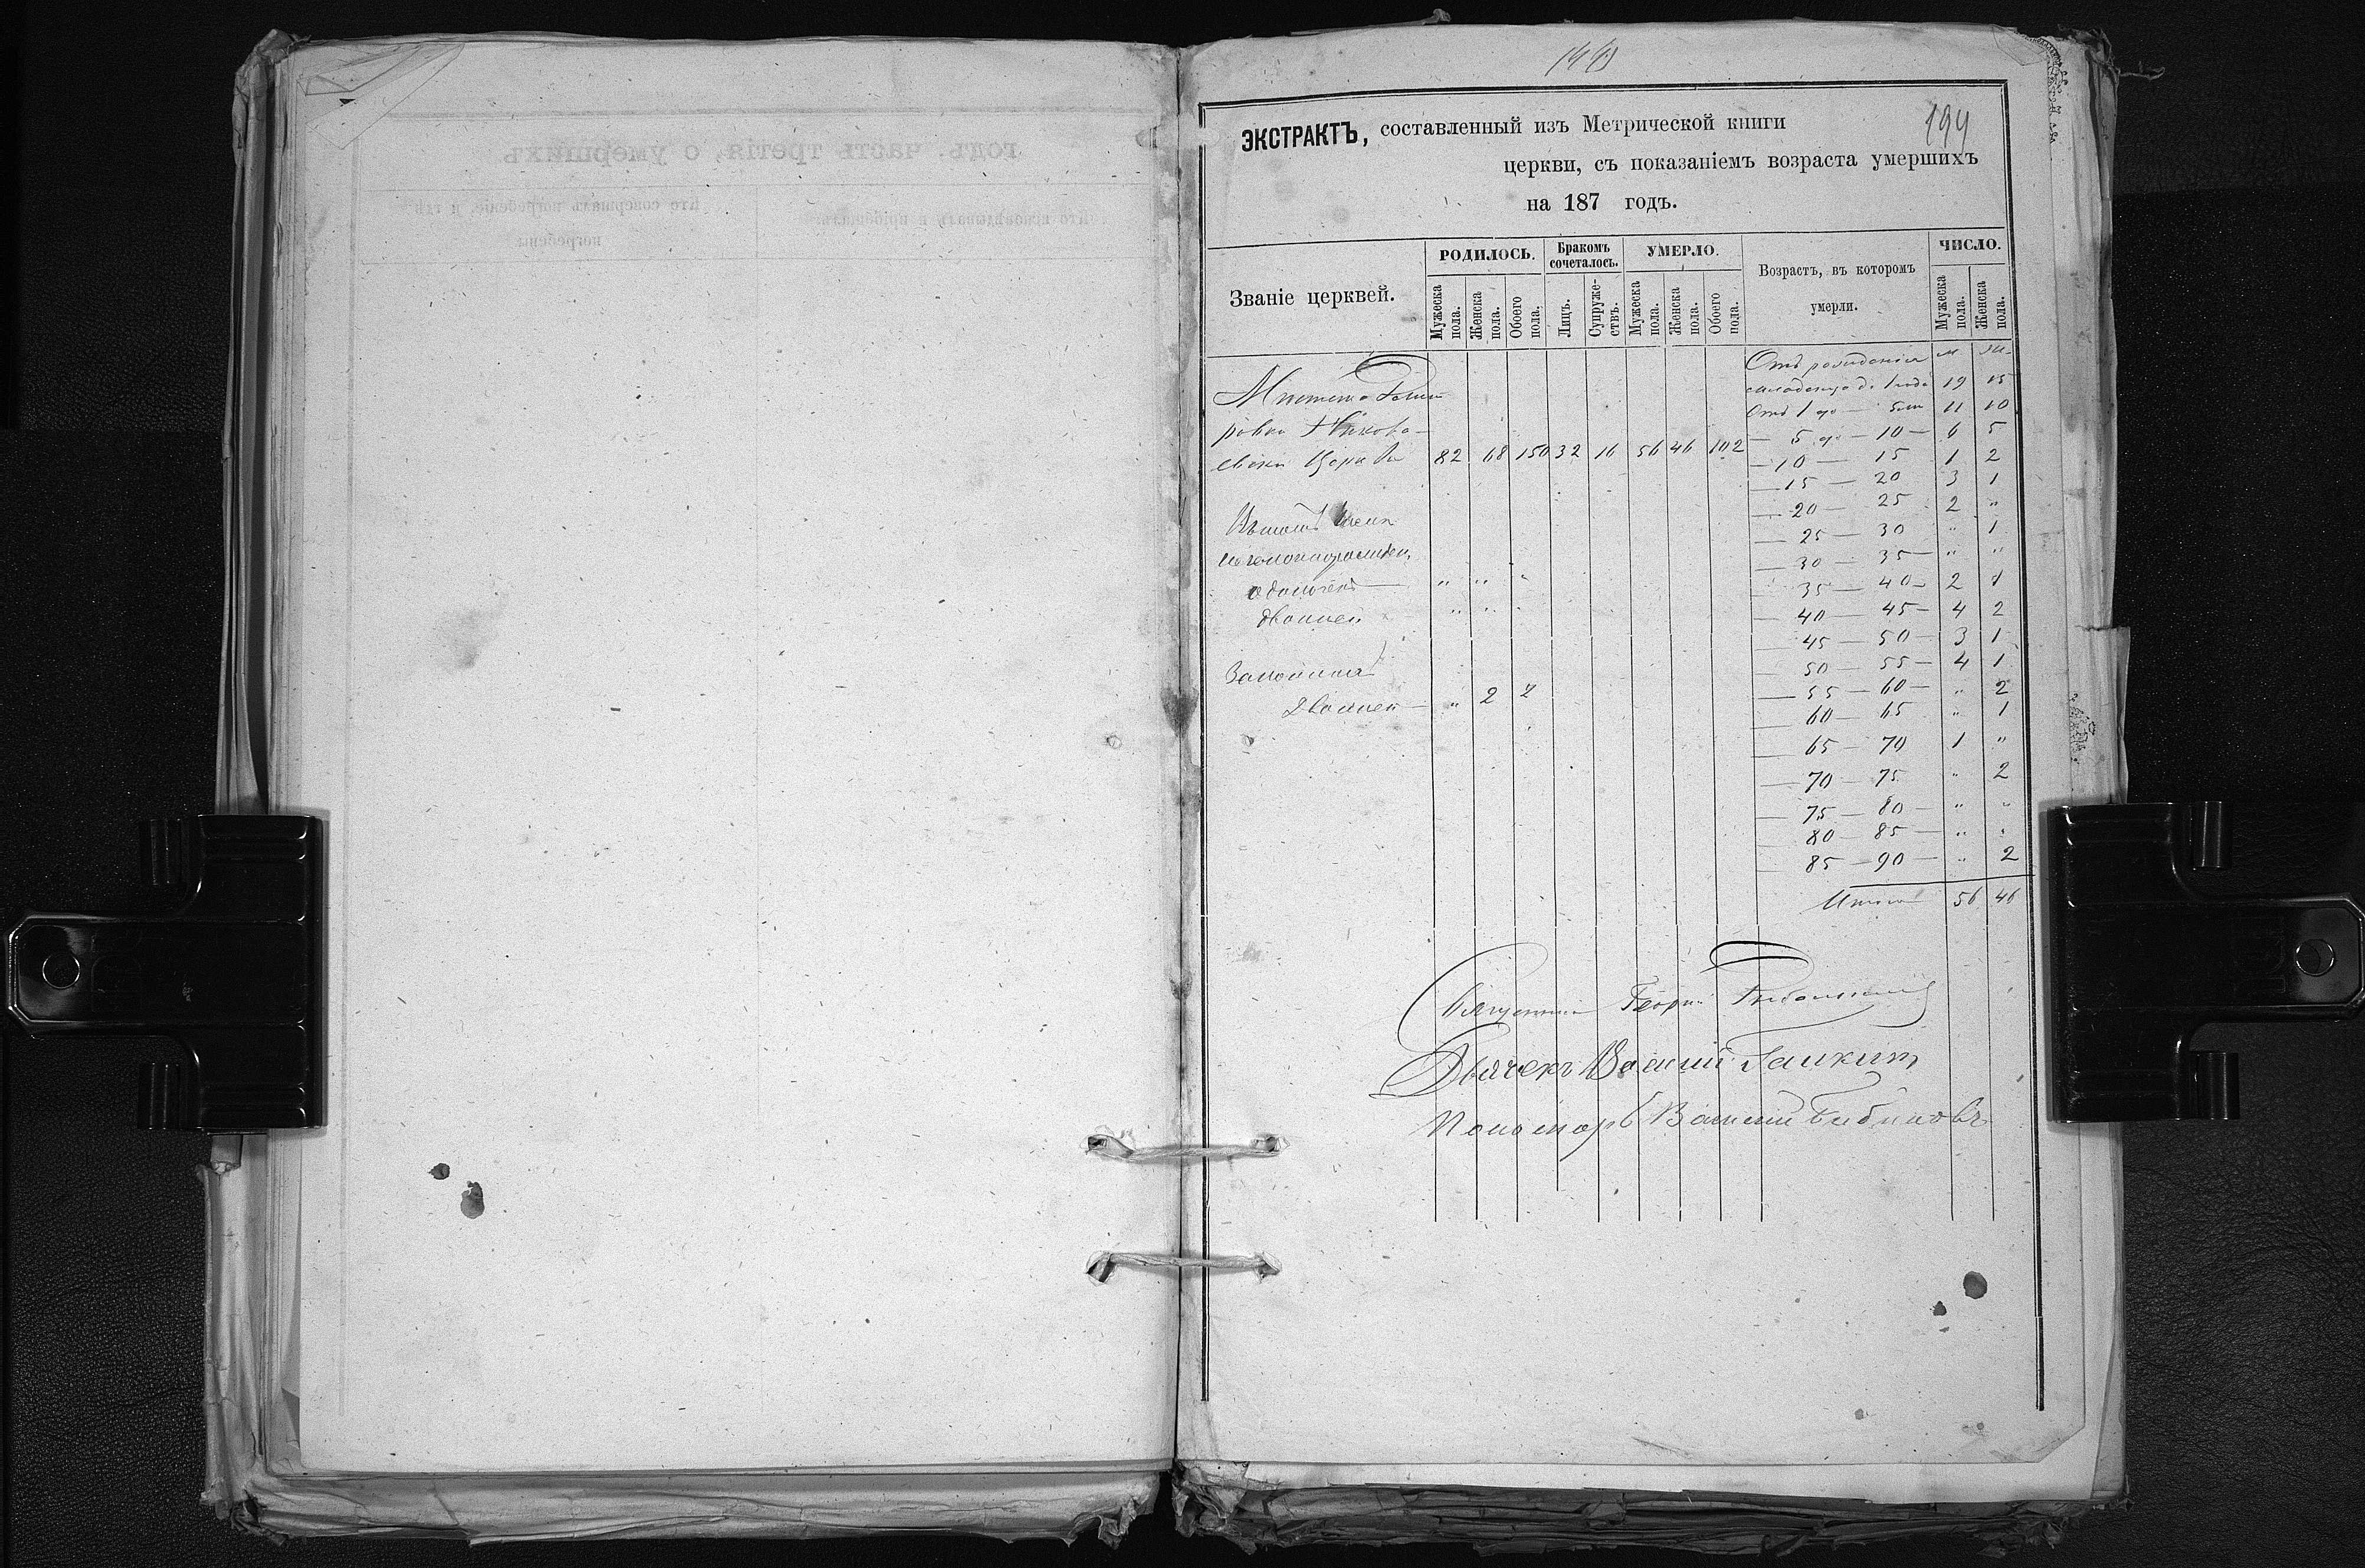 194
ЭКСТРАКТЪ, составленный изъ Метрической книги
церкви, съ показаніемъ возраста умершихъ
на 187 годъ.
Званіе церквей.
РОДИЛОСЬ.
Мужеска пола.
Женска пола.
Обоего пола.
Бракомъ сочеталось.
Лицъ.
Супруже-ствъ.
УМЕРЛО.
Мужеска пола.
Женска пола.
Обоего пола.
Возрастъ, въ которомъ
умерли.
ЧИСЛО.
Мужеска пола.
Женска пола.
Отъ рожденія м ж
младенца до 1 года 19 15
Отъ 1 до — 5 11 10
— 5 до — 10 — 6 5
82 68 150 32 16 56 46 102
— 10 — 15 1 2
— 15 — 20 3 1
— 20 — 25 2 "
— 25 — 30 " 1
— 30 — 35 — " "
— 35 — 40 — 2 1
двоиней " " "
— 40 — 45 — 4 2
— 45 — 50 — 3 1
— 50 — 55 — 4 1
— 55 — 60 — " 2
Двоиней — " 2 2
— 60 — 65 " 1
— 65 — 70 1 "
— 70 — 75 " 2
— 75 — 80 — " "
— 80 — 85 — " "
— 85 — 90 — " 2
Итого 56 46
Священник Георгій
Дьячекъ Василий
Пономарь Василий Бибиковъ
годъ. часть третія, о умершихъ
Кто совершалъ погребеніе, и гдѣ
погребены.